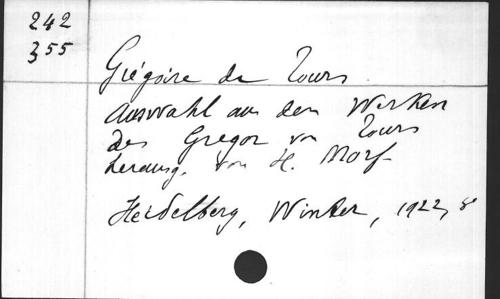 242
355
Grégoire de Tours
Auswahl aus den Werken
des Gregor von Tours
herausg. von H. Morf
Heidelberg, Winter, 1922, 8°